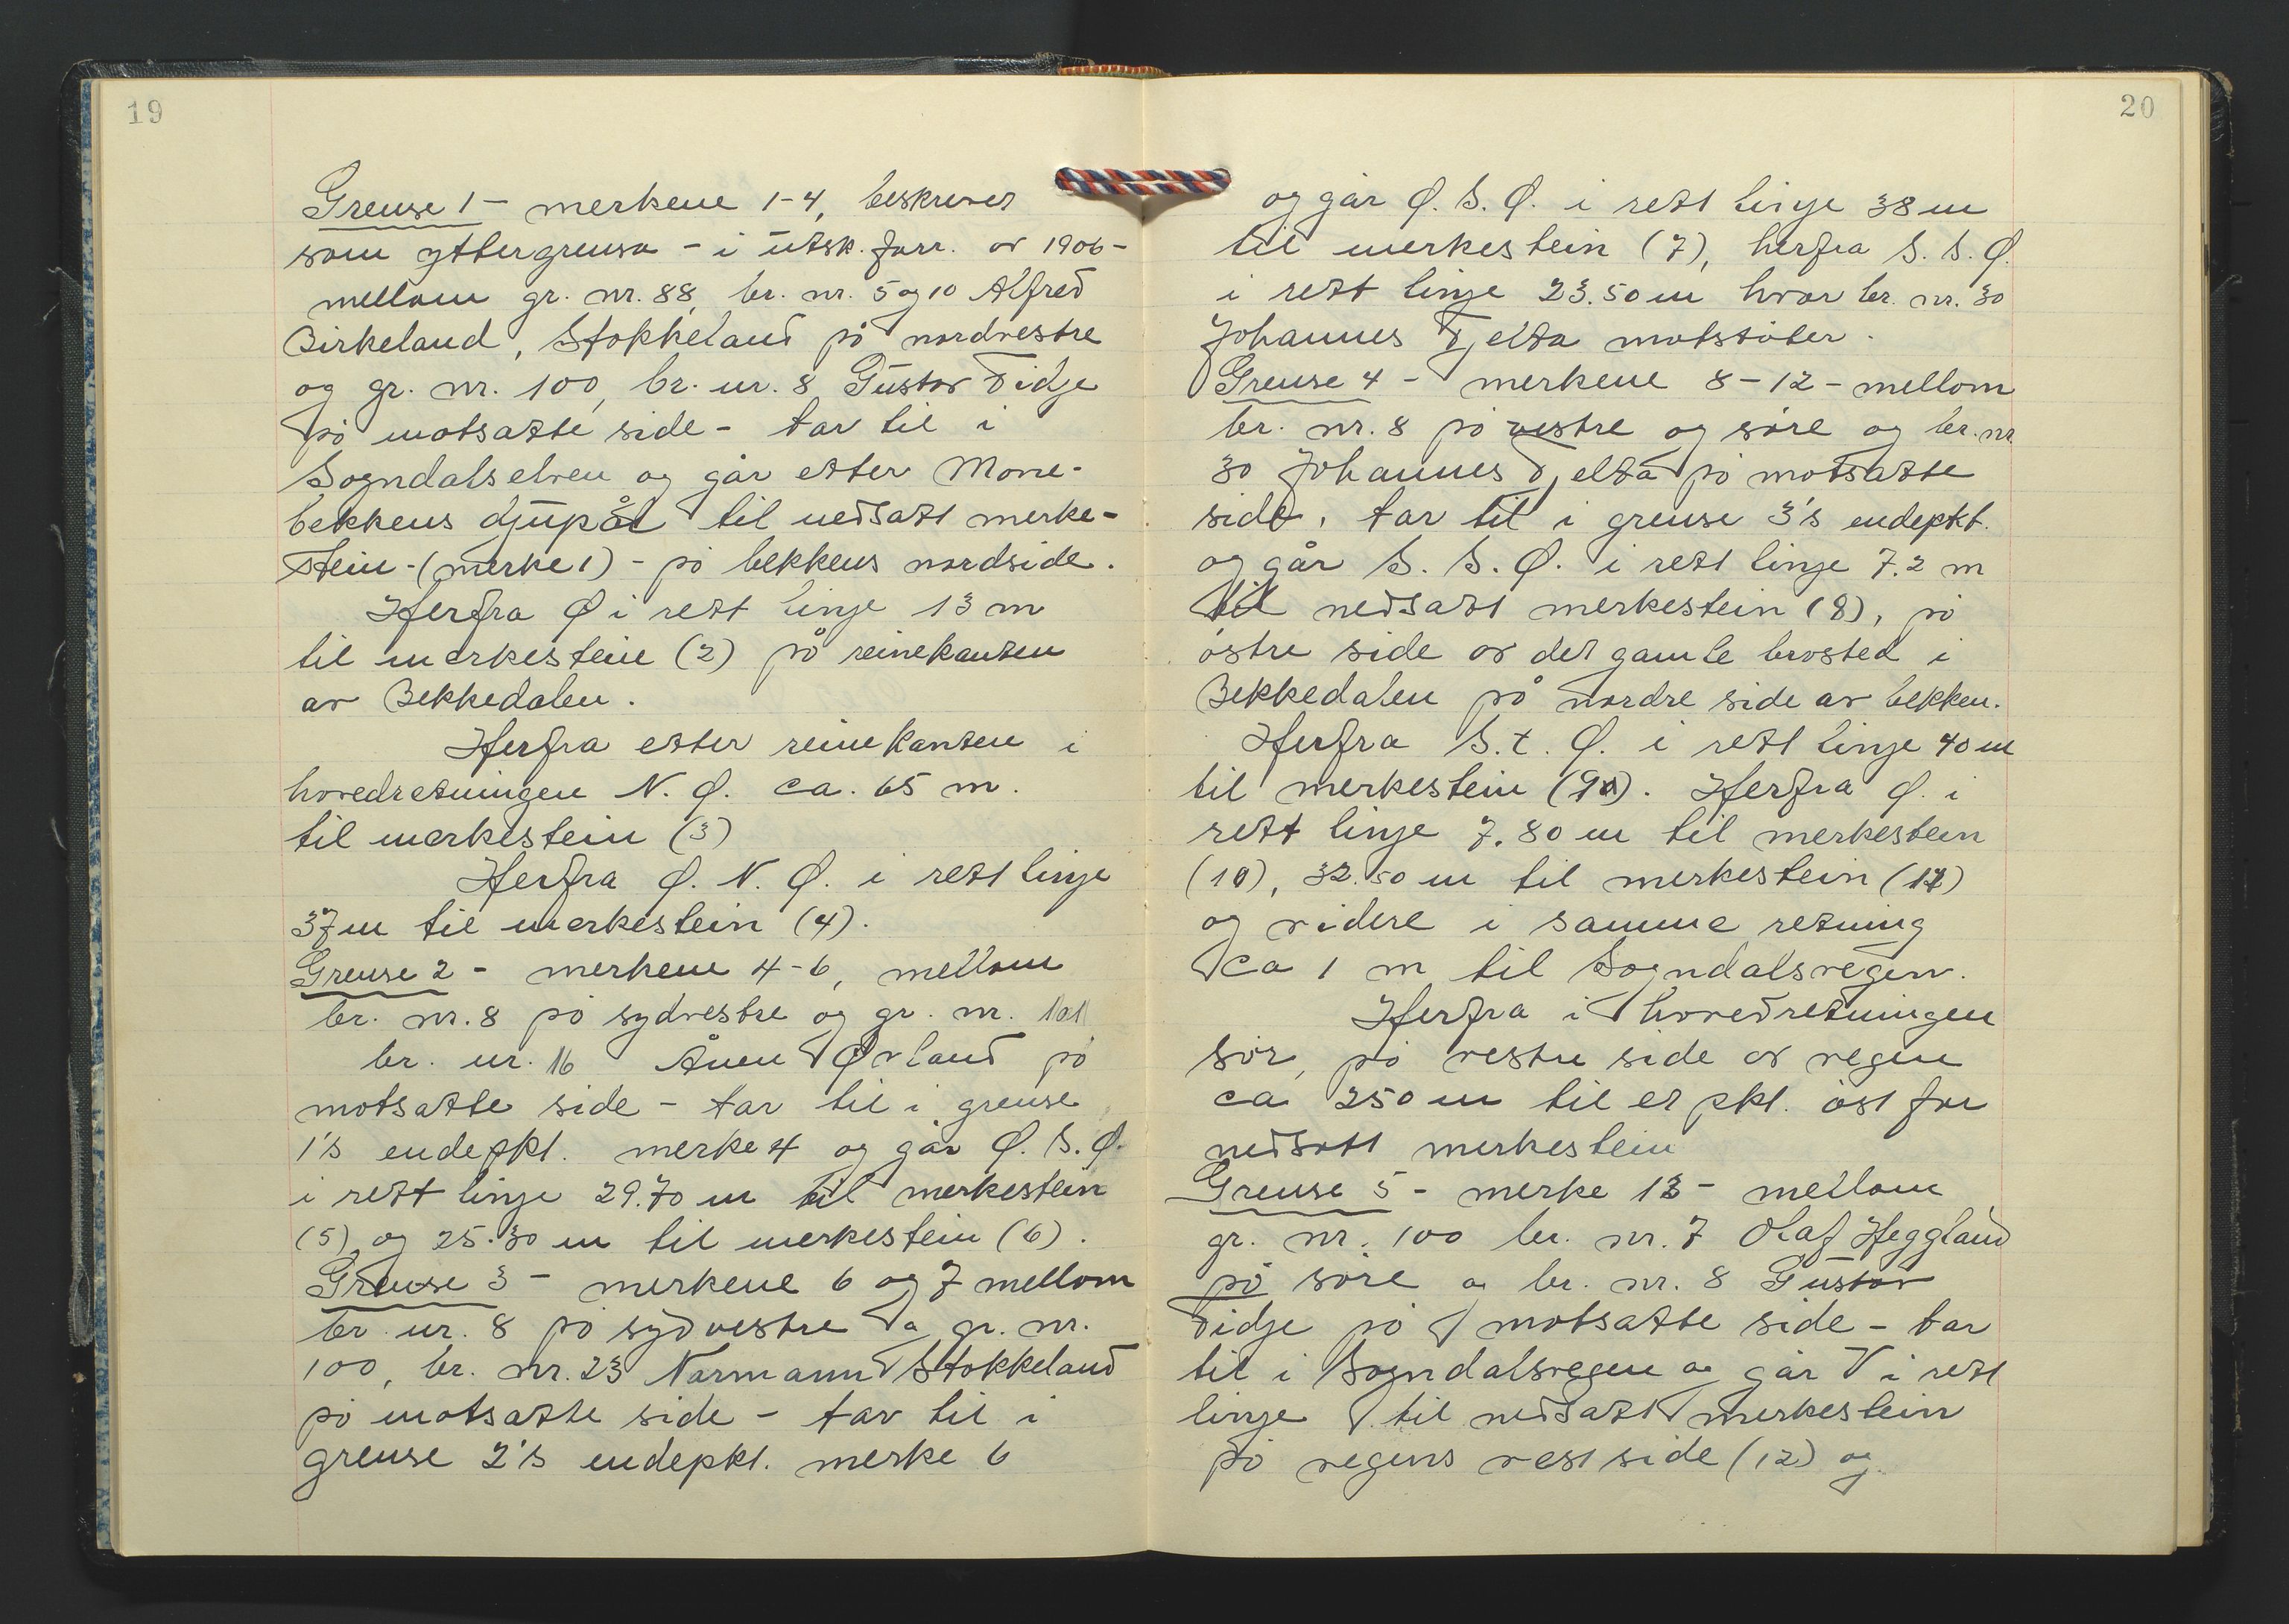 19
Grense 1 - merkene 1-4, beskrevet
som yttergrensa - i utsk. forr. av 1906 -
mellom gr. nr. 88, br. nr. 5 og 10 Alfred
Birkeland, Stokkeland på nordvestre
og gr. nr. 100, br. nr. 8 Gustav Tidje
på motsatte side - tar til i
Sogndalselven og går etter Mone-
bekkens djupål til nedsatt merke-
stein - (merke 1) - på bekkens nordside.
Herfra Ø i rett linje 13 m
til merkestein (2) på reinekanten
av Bekkedalen.
Herfra etter reinekanten i
hovedretningen N. Ø. ca. 65 m.
til merkestein (3)
Herfra Ø. N. Ø. i rett linje
37 m til merkestein (4).
Grense 2 - merkene 4-6, mellom
br. nr. 8 på sydvestre og gr. nr. 101
br. nr. 16 Ånen Øvland på
motsatte side - tar til i grense
1's endepkt. merke 4 og går Ø. S. Ø.
i rett linje 29.70 m til merkestein
(5) og 25.30 m til merkestein (6).
Grense 3 - merkene 6 og 7 mellom
br. nr. 8 på sydvestre og gr. nr.
100, br. nr. 23 Normann Stokkeland
på motsatte side - tar til i
grense 2's endepkt. merke 6
20
og går Ø. S. Ø. i rett linje 38 m
til merkestein (7), herfra S. S. Ø.
i rett linje 23.50 m hvor br. nr. 30
Johannes Tjelta motstöter.
Grense 4 - merkene 8-12 - mellom
br. nr. 8 på vestre og söre og br. nr.
30 Johannes Tjelta på motsatte
side, tar til i grense 3's endepkt.
og går S. S. Ø. i rett linje 7.2 m
til nedsatt merkestein (8), på
östre side av det gamle brosted i
Bekkedalen på nordre side av bekken.
Herfra S. t. Ø. i rett linje 40 m
til merkestein (9). Herfra Ø. i
rett linje 7.80 m til merkestein
(10), 32.50 m til merkestein (11)
og videre i samme retning
ca 1 m til Sogndalsvegen.
Herfra i hovedretningen
sör, på vestre side av vegen
ca 250 m til et pkt. öst for
nedsatt merkestein
Grense 5 - merke 13 - mellom
gr. nr. 100 br. nr. 7 Olaf Heggland
på söre og br. nr. 8 Gustav
Tidje på motsatte side - tar
til i Sogndalsvegen og går V i rett
linje til nedsatt merkestein
på vegens vestside (12) og